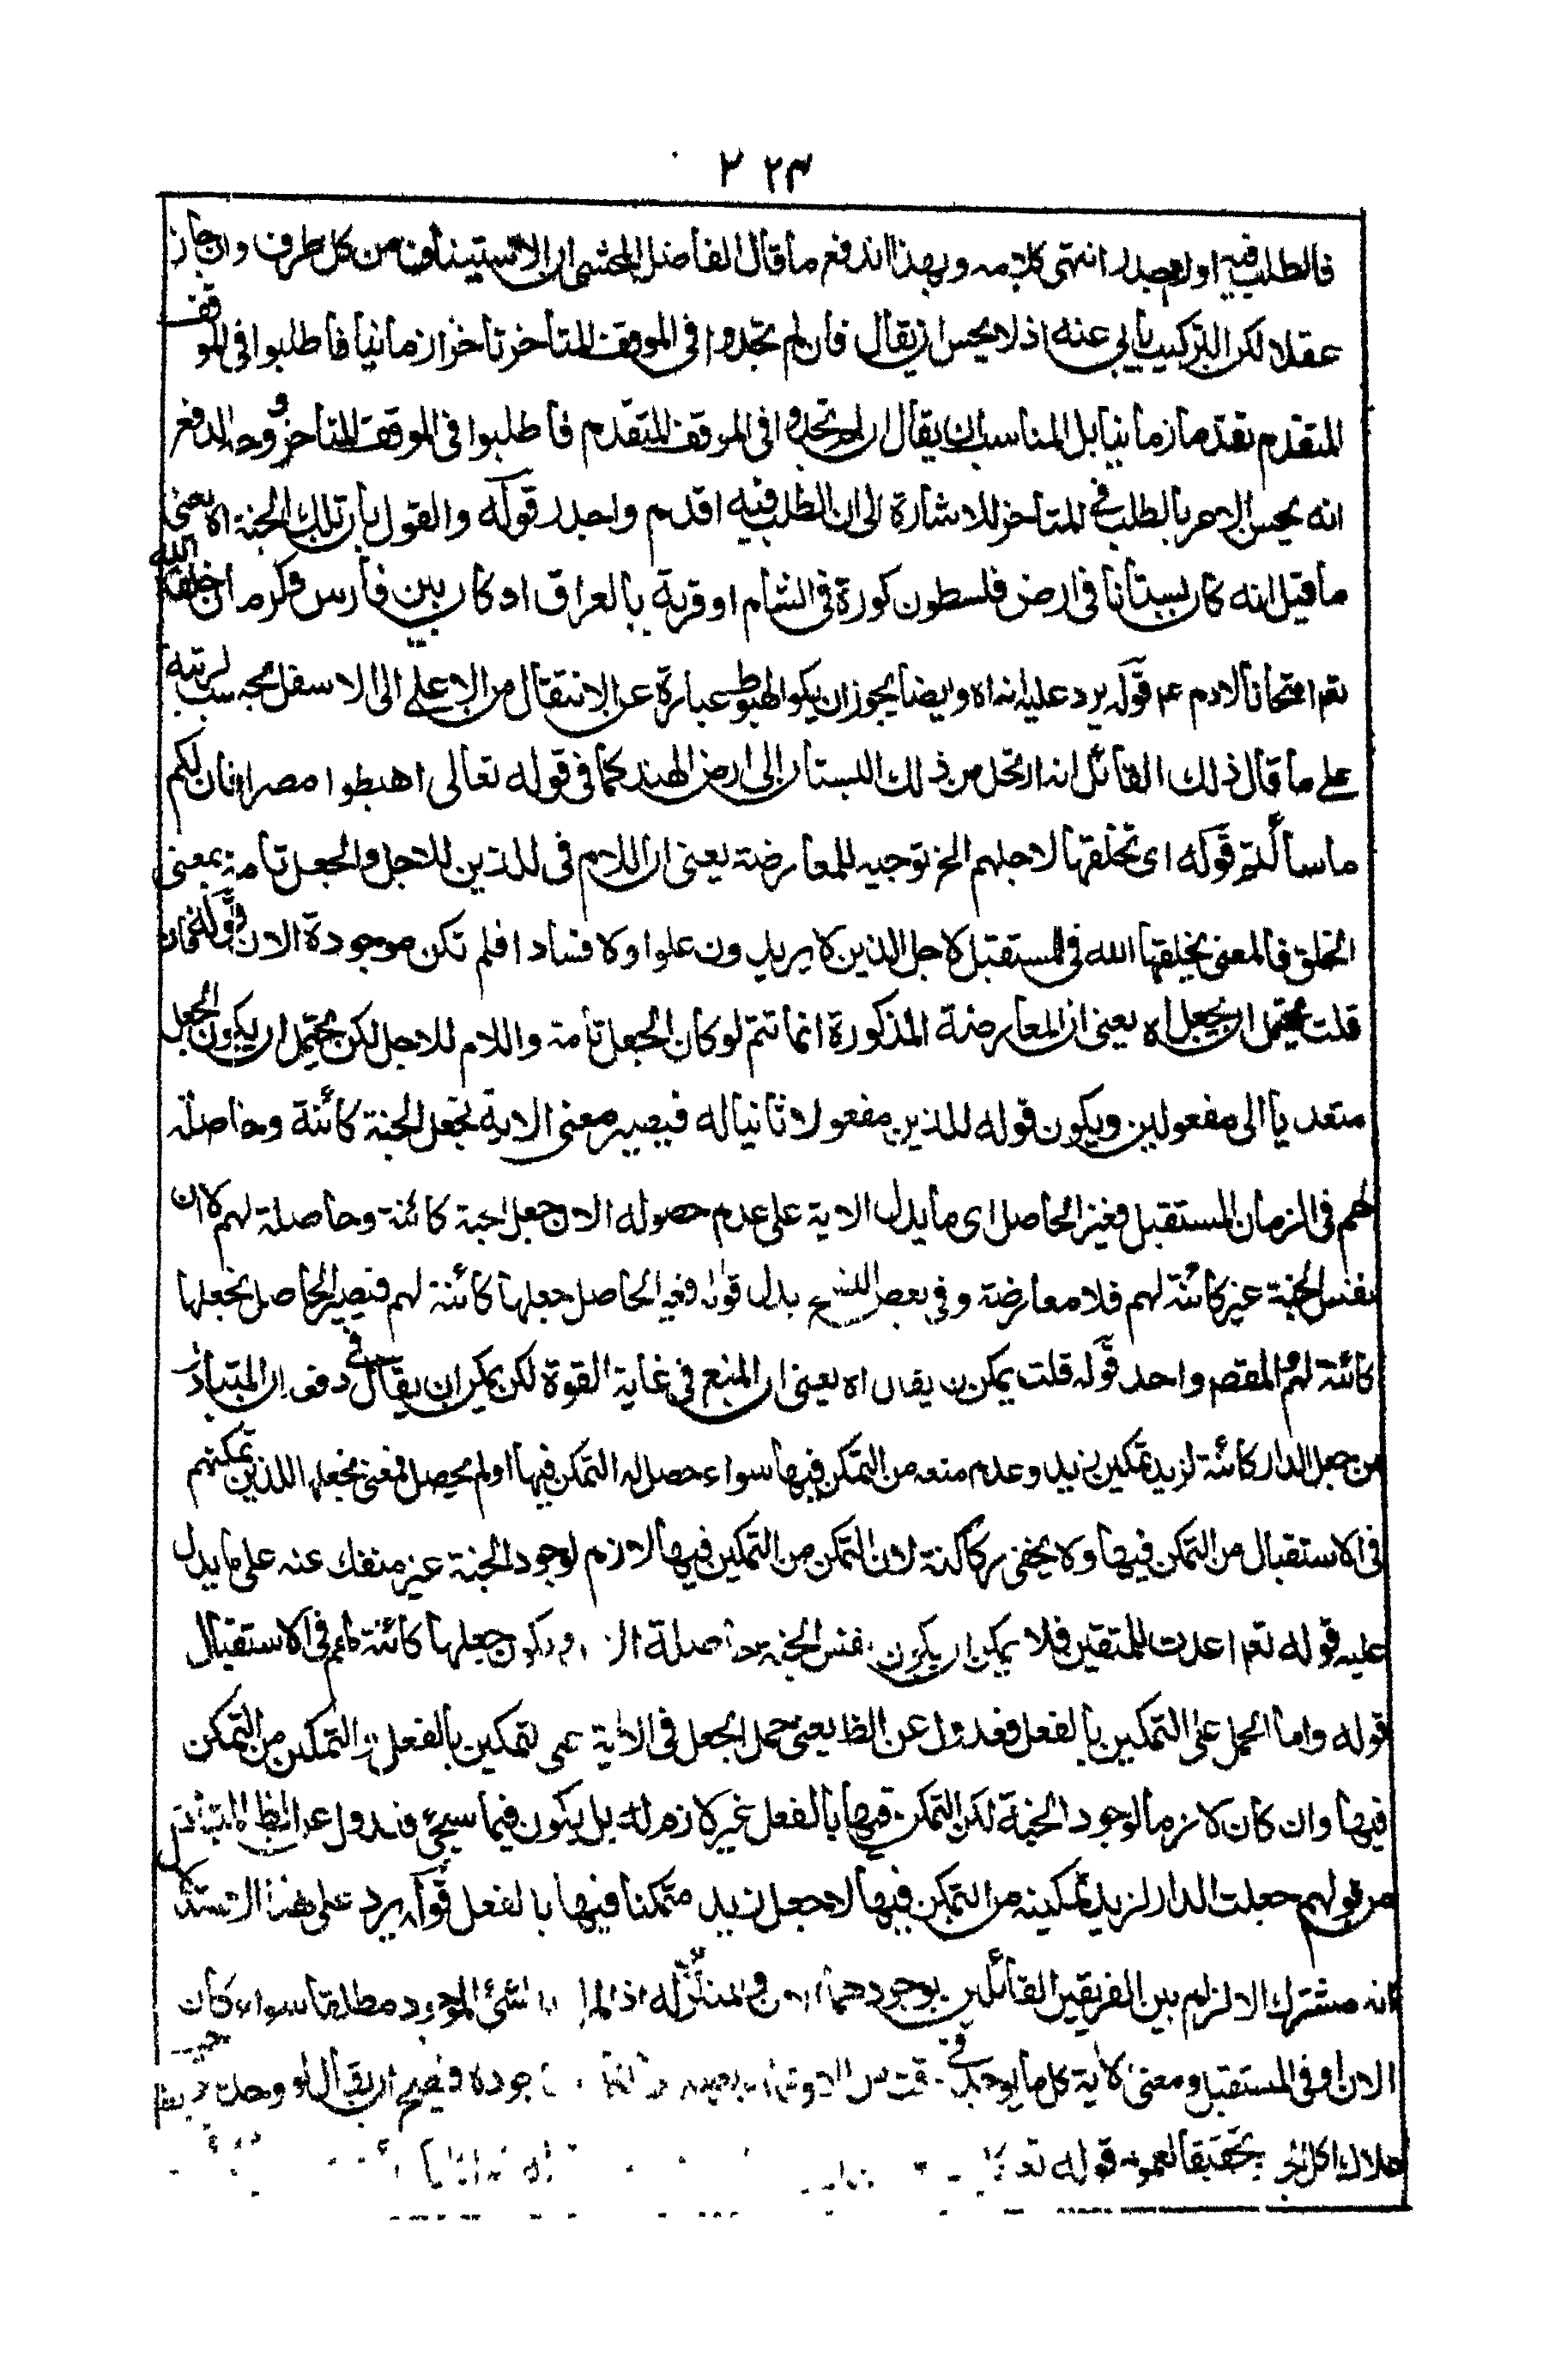 ٢٢٣
فالطلب فيه اولى واجدر انتهى كلامه وبهذا اندفع ما قال الفاضل المحشى ان الاستيناف من كل طرف وان جاز
عقلا لكن التركيب يأبى عنه اذ لا يحسن ان يقال فان لم تجدوا فى الموقف المتأخر تأخرا زمانيا فاطلبوا فى الموقف
المتقدم تقدما زمانيا بل المناسب ان يقال ان لم تجدوا فى الموقف المتقدم فاطلبوا فى الموقف المتأخر ووجه الدفع
انه يحسن الامر بالطلب فى المتأخر للاشارة الى ان الطلب فيه اقدم واجدر قوله والقول بان تلك الجنة اه يعنى
ما قيل انه كان بستانا فى ارض فلسطون كورة فى الشام او قرية بالعراق او كان بين فارس وكرمان خلقه الله
تعم امتحانا لادم عم قوله يرد عليه انه اه وايضا يجوز ان يكون الهبوط عبارة عن الانتقال من الاعلى الى الاسفل بحسب الرتبة
على ما قال ذلك القائل انه ارتحل من ذلك البستان الى ارض الهند كما فى قوله تعالى اهبطوا مصرا فان لكم
ما سألتم قوله اى نخلقها لاجلهم الخ توجيه للمعارضة يعنى ان اللام فى للذين للاجل والجعل تامة بمعنى
الخلق فالمعنى يخلقها الله فى المستقبل لاجل الذين لا يريدون علوا ولا فسادا فلم تكن موجودة الان قوله فان
قلت يحتمل ان يجعل اه يعنى ان المعارضة المذكورة انما تتم لو كان الجعل تامة واللام للاجل لكن يحتمل ان يكون الجعل
متعديا الى مفعولين ويكون قوله للذين مفعولا ثانيا له فيصير معنى الاية نجعل الجنة كائنة وحاصلة
لهم فى الزمان المستقبل فغير الحاصل اى ما يدل الاية على عدم حصوله الان جعل الجنة كائنة وحاصلة لهم لا ان
نفس الجنة غير كائنة لهم فلا معارضة وفى بعض النسخ بدل قوله فغير الحاصل جعلها كائنة لهم فيصير الحاصل نجعلها
كائنة لهم والمقصم واحد قوله قلت يمكن ان يقال اه يعنى ان المنع فى غاية القوة لكن يمكن ان يقال فى دفعه ان المتبادر
من جعل الدار كائنة لزيد تمكين زيد وعدم منعه من التمكن فيها سواء حصل له التمكن فيها اولم يحصل فمعنى نجعلها للذين تمكنهم
فى الاستقبال من التمكن فيها ولا يخفى ركاكته لان التمكن من التمكين فيها لازم لوجود الجنة غير منفك عنه على ما يدل
عليه قوله تعم اعدت للمتقين فلا يمكن ان يكون نفس الجنة حاصلة الان ويكون جعلها كائنة لهم فى الاستقبال
قوله واما الحمل على التمكين بالفعل فعدول عن الظ يعنى حمل الجعل فى الاية على التمكين بالفعل التمكين من التمكن
فيها وان كان لازما لوجود الجنة لكن التمكن فيها بالفعل غير لازم له بل يكون فيما سيجئ فعدول عن الظ المتبادر
من قولهم جعلت الدار لزيد تمكينه من التمكن فيها لا جعل زيد متمكنا فيها بالفعل قوله يرد على هذا الاستدلال
انه مشترك الالزام بين الفريقين القائلين بوجودهما الان والمنكر له اذ المراد الشئ الموجود مطلقا سواء كان
الان او فى المستقبل ومعنى الاية كل ما يوجد فى وقت من الاوقات يصير وجوده فيصح ان يقال لو وجدت
هلاك اكل الخ تحقيقا لعموم قوله تعم